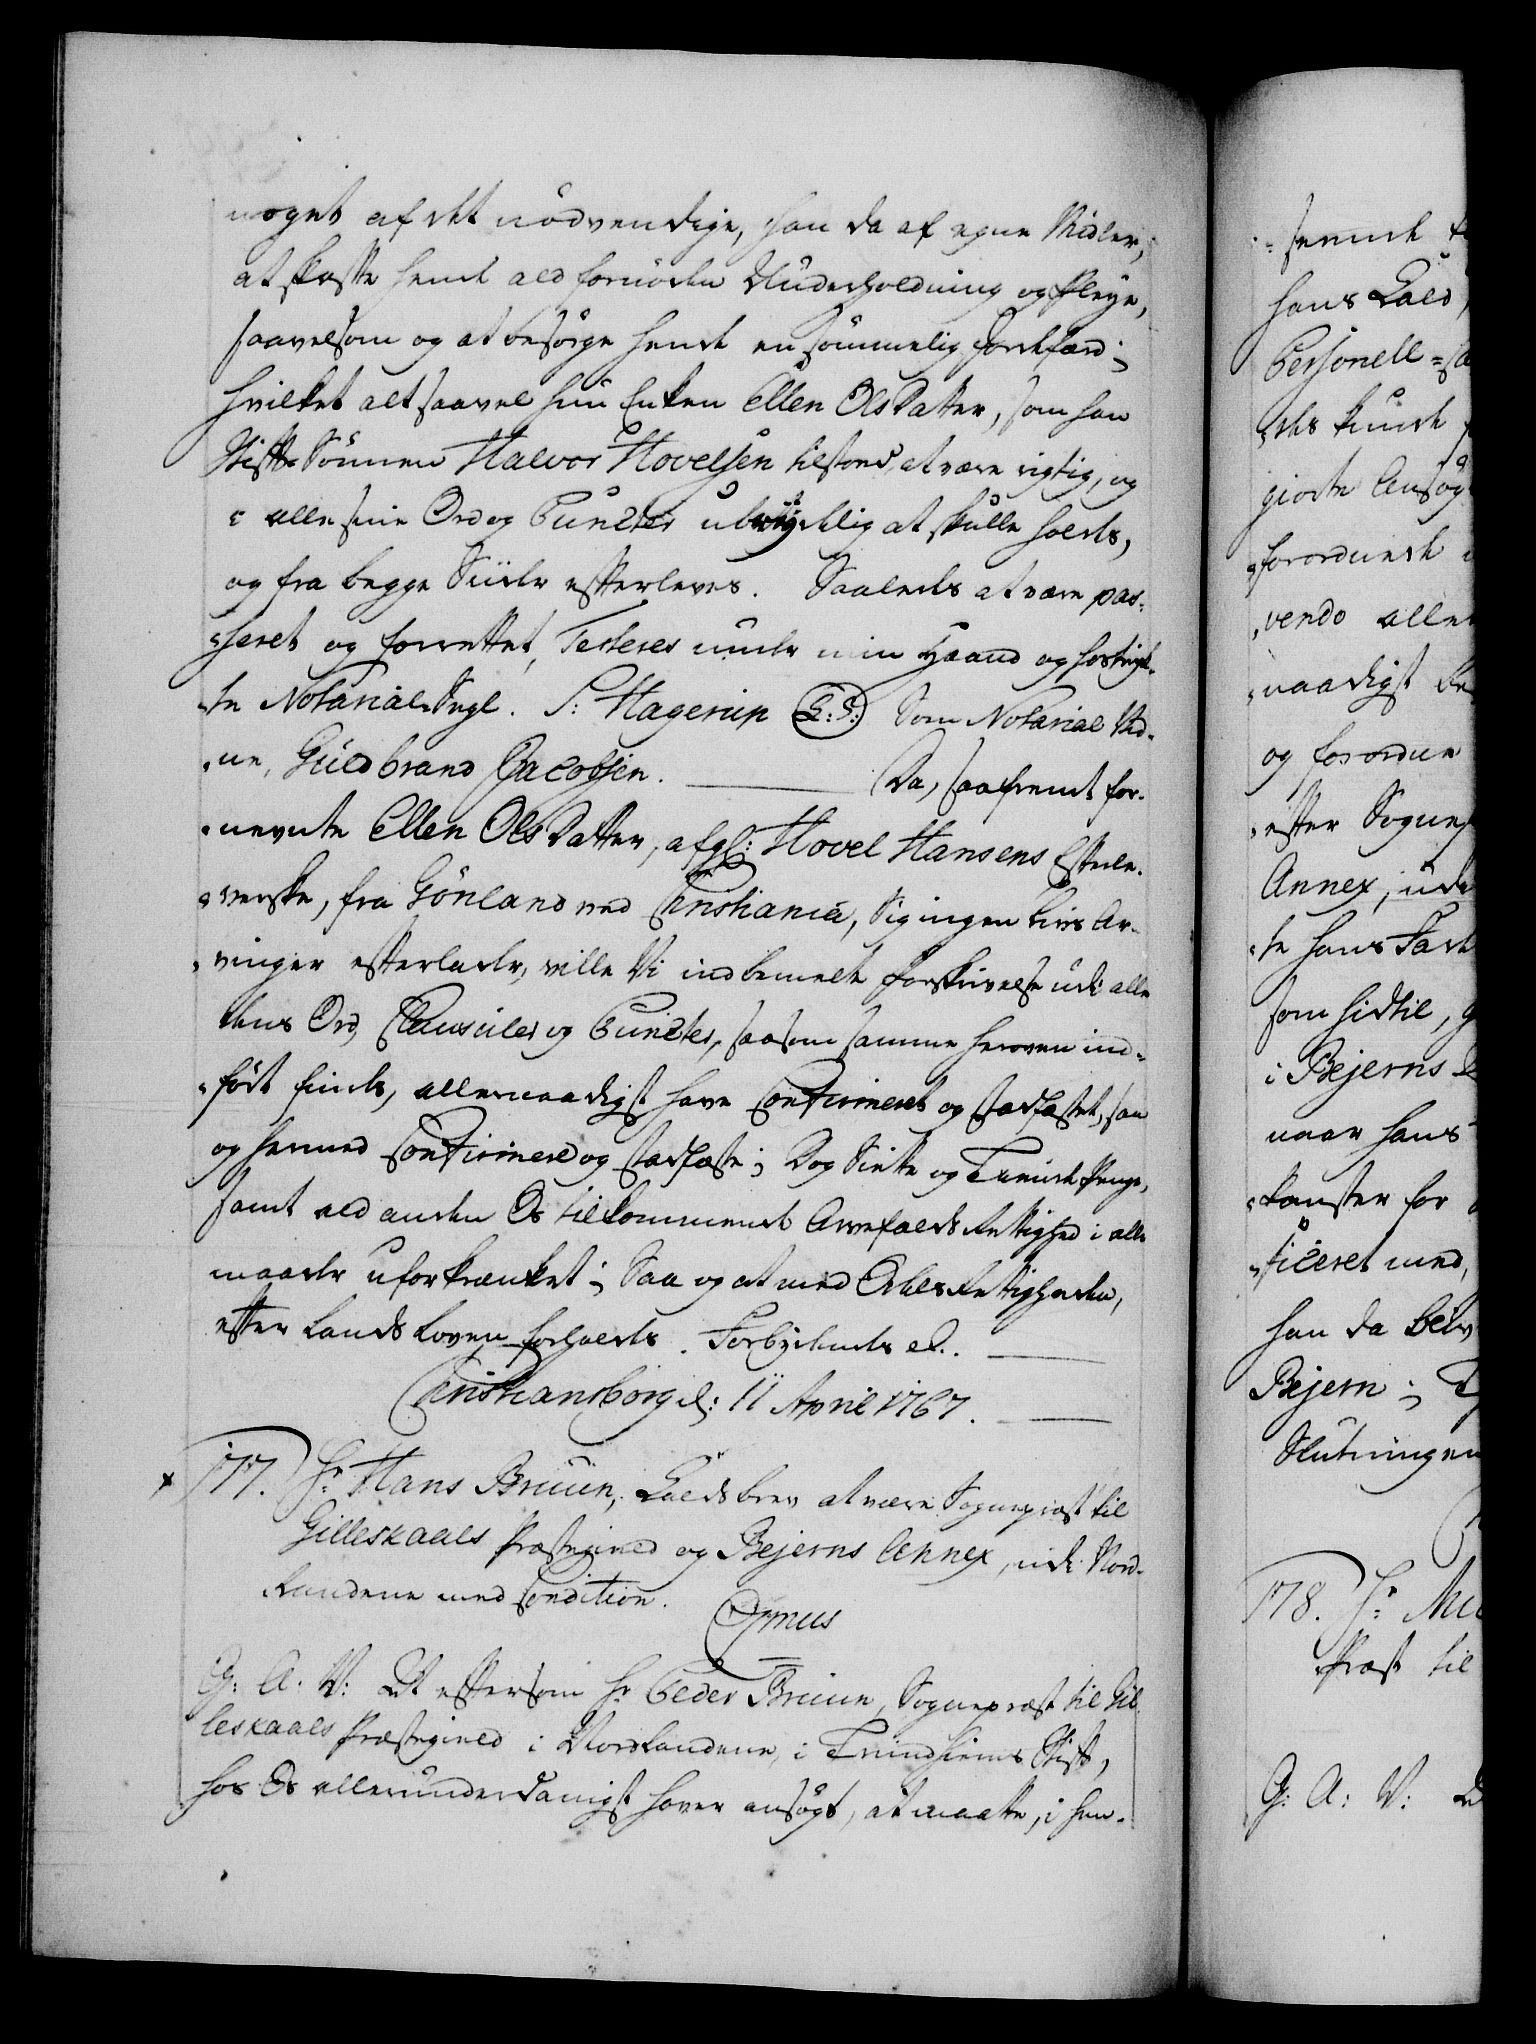 noget af det nödvendige, han da af egne Midler,
at skaffe hende ald fornöden Underholdning og Pleye,
saavelsom og at besörge hende en sömmelig Jordefærd;
hvilket alt saavel hun Enken Ellen Olsdatter, som han
Stiff Sönnen Halvor Hovelsen tilstoed, at være rigtig, og
i alle sine Ord og Puncter ubrydelig at skulle holdes,
og fra begge Siider efterleves. Saaledes at være pas-
seret og forrettet, Testeres under min Haand og hostryk-
te Notarial Segl. S: Hagerup (L: S:) Som Notarial Vid-
ne, Guldbrand Jacobsen. Da, saafremt for-
nevnte Ellen Olsdatter, afgl: Hovel Hansens Efterle-
verske, fra Grönland ved Christiania, Sig ingen Livs Ar-
vinger efterlader, ville Vi indbemelte Forskrivelse udi alle
dens Ord, Clausuler og Puncter, saasom samme heroven ind-
fört findes, allernaadigst have Confirmeret og stadfæstet, saa
og hermed Confirmere og stadfæste; Dog Siette og Tiende Penge,
samt ald anden Os tilkommende Arvefalds Rettighed i alle
maader uforkrænket; Saa og at med Odels Rettigheden,
efter Lands Loven forholdes. Forbydendes etc.
Christiansborg d: 11 April 1767.
177. Hr Hans Bruun, Kaldsbrev at være Sognepræst til
Gilleskaals Præstegield og Bejerns Annex, udi Nord-
landene med Condition.
G: A: V: At eftersom Hr Peder Bruun, Sognepræst til Gil-
leskaals Præstegield i Nordlandene, i Trundhiems Stift,
hos Os allerunderdanigst haver ansögt, at maatte, i hen-
hans Kald,
Personell
giorte Ansög
forordnede
vendo aller
naadigst
og forordne
efter Sognep
Annex, ude
som hidtil, g
i Bejerns
naar hans
ficeret med,
han da
Bejern;
Slutningen
178. Hr
Præst til
G: A: V: